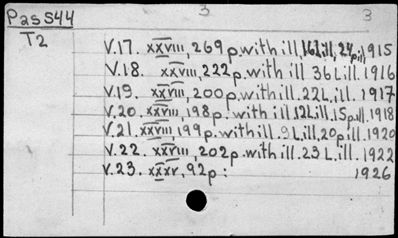 PasS44 3 3
T2
V.17. xxviii, 269p. with ill, 16L.ill, 24p.ill, 1915
V.18. xxviii, 222p. with ill 36L.ill. 1916
V.19. xxviii, 200p. with ill. 22L.ill. 1917
V.20. xxviii, 198p. with ill. 12L.ill. 15p.ill. 1918
V.21. xxviii, 199p. with ill. 9L.ill, 20p.ill. 1920
V.22. xxviii, 202p. with ill. 23L.ill. 1922
V.23. xxxv, 92p: 1926